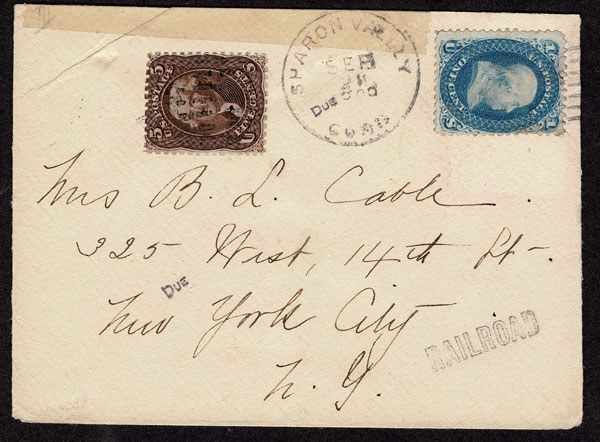 U.S. POSTAGE
FIVE CENTS
5 5
U 5
SHARON VALLEY
SEP
CONN
Due
U.S. POSTAGE
ONE CENT
1 1
Mrs B. L. Cable
325 West, 14th St.
Due
New York City
N. Y.
RAILROAD